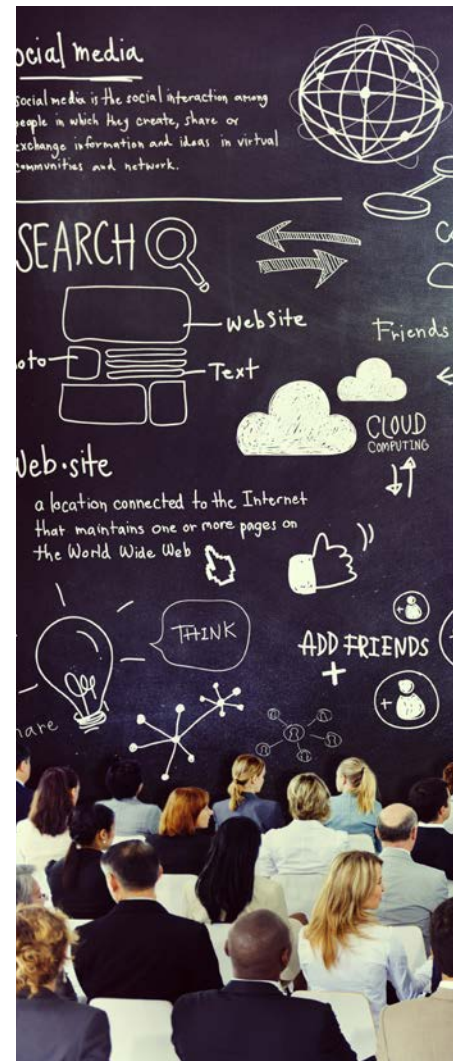 ocial media
social media is the social interaction among
people in which they create, share or
exchange information and ideas in virtual
communities and network.
SEARCH
Website
Friends
oto
Text
CLOUD
COMPUTING
Web·site
a location connected to the Internet
that maintains one or more pages on
the World Wide Web
THINK
ADD FRIENDS
+
hare